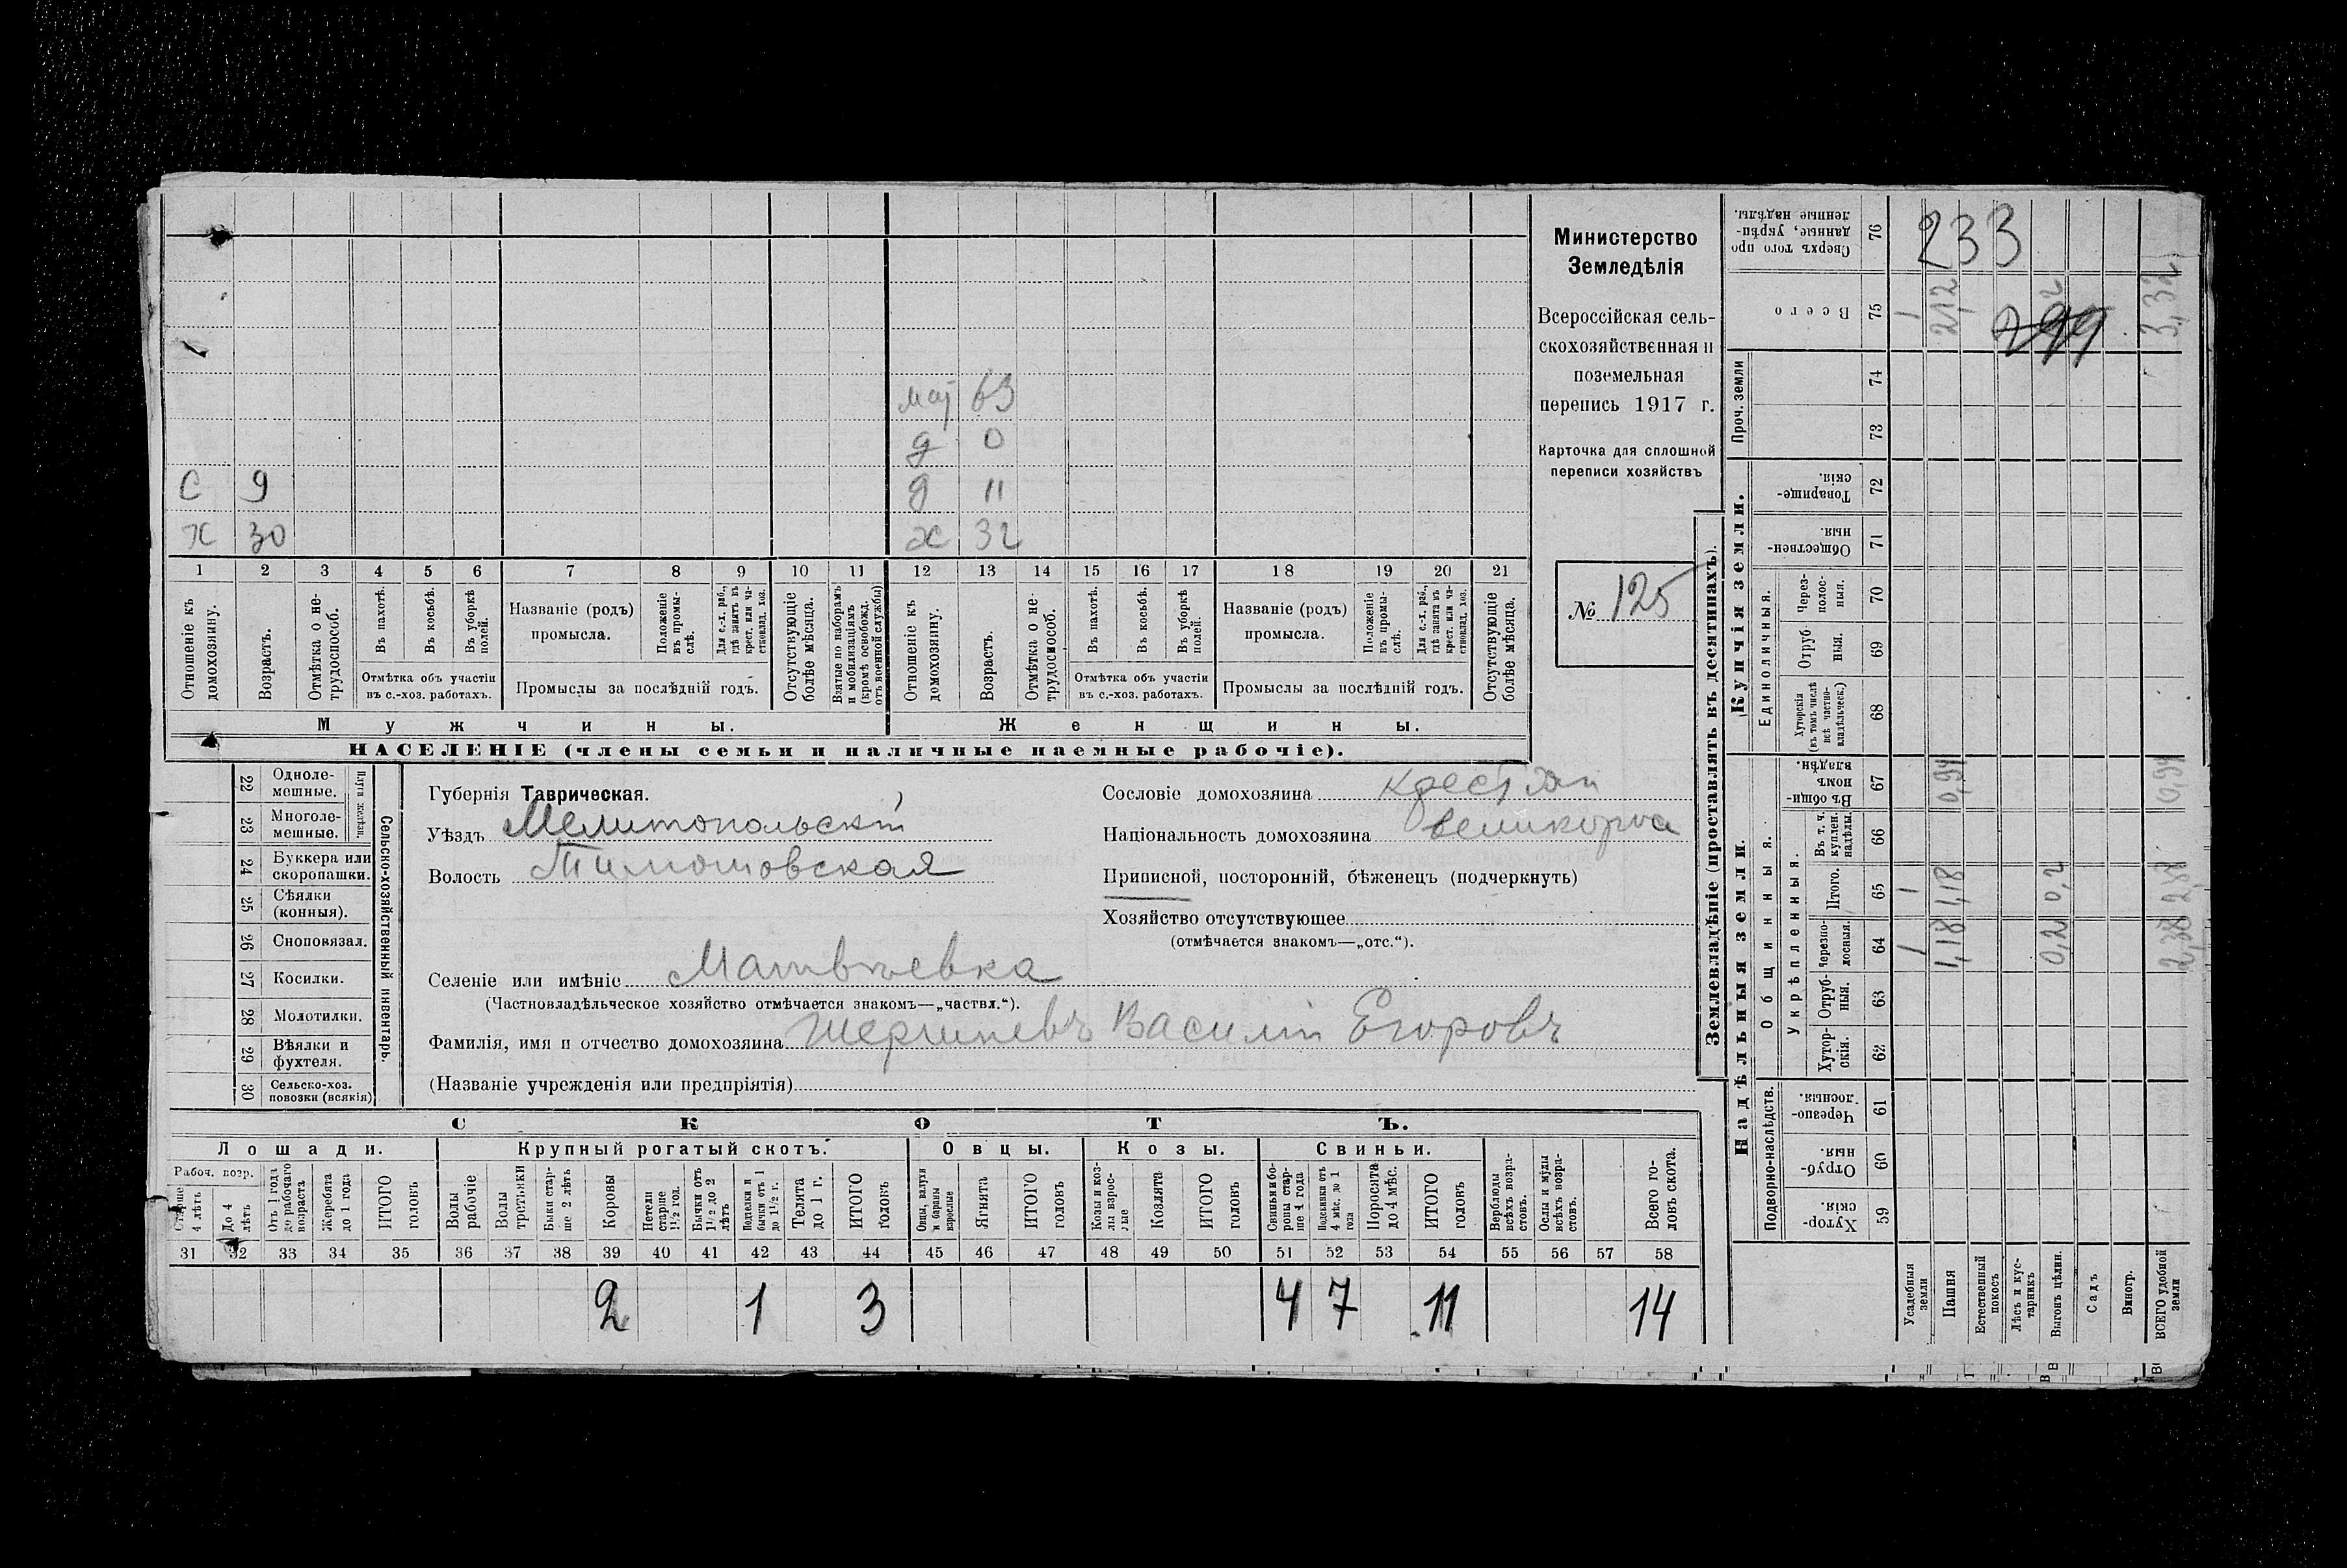 мат 63
д 0
С 9 д 11
х 30 ж 32
1 2 3 4 5 6 7 8 9 10 11 12 13 14 15 16 17 18 19 20 21
Отношеніе къ домохозяину.
Возрастъ.
Отмѣтка о нетрудоспособ.
Въ пахотѣ.
Въ косьбѣ.
Въ уборкѣ полей.
Отмѣтка объ участіи въ с.-хоз. работахъ.
Названіе (родъ) промысла.
Положеніе въ промыслѣ.
Для с.-х. раб., гдѣ занятъ въ крест. или частновлад. хоз.
Промыслы за послѣдній годъ.
Отсутствующіе болѣе мѣсяца.
Взятые по наборамъ и мобилизаціямъ (кромѣ освобожд. отъ военной службы)
Отношеніе къ домохозяину.
Возрастъ.
Отмѣтка о нетрудоспособ.
Въ пахотѣ.
Въ косьбѣ.
Въ уборкѣ полей.
Отмѣтка объ участіи въ с.-хоз. работахъ.
Названіе (родъ) промысла.
Положеніе въ промыслѣ.
Для с.-х. раб., гдѣ занята въ крест. или частновлад. хоз.
Промыслы за послѣдній годъ.
Отсутствующіе болѣе мѣсяца.
Мужчины. Женщины.
НАСЕЛЕНІЕ (члены семьи и наличные наемные рабочіе).
Министерство
Земледѣлія
Всероссійская сель-
скохозяйственная и
поземельная
перепись 1917 г.
Карточка для сплошной
переписи хозяйствъ
№ 125
22 Одноле-
мешные.
23 Многоле-
мешные.
Плуги желѣзн.
24 Буккера или
скоропашки.
25 Сѣялки
(конныя).
26 Сноповязал.
27 Косилки.
28 Молотилки.
29 Вѣялки и
фухтеля.
30 Сельско-хоз.
повозки (всякія)
Сельско-хозяйственный инвентарь.
Губернія Таврическая.
Уѣздъ Мелитопольскій
Волость Тимошовская
Сословіе домохозяина крестьян
Національность домохозяина великоросс
Приписной, посторонній, бѣженецъ (подчеркнуть)
Хозяйство отсутствующее
(отмѣчается знакомъ—„отс.“).
Селеніе или имѣніе Матвѣевка
(Частновладѣльческое хозяйство отмѣчается знакомъ—„частвл.“).
Фамилія, имя и отчество домохозяина Василій Егоровъ
(Названіе учрежденія или предпріятія)
СКОТЪ.
Лошади. Крупный рогатый скотъ. Овцы. Козы. Свиньи.
Рабоч. возр.
Старше 4 лѣтъ
До 4 лѣтъ
Отъ 1 года до рабочаго возраста
Жеребята до 1 года
ИТОГО головъ
Волы рабочіе
Волы третьяки
Быки старше 2 лѣтъ
Коровы
Нетели старше 1½ год.
Бычки отъ 1½ до 2 лѣтъ
Подтелки и бычки отъ 1 до 1½ г.
Телята до 1 г.
ИТОГО головъ
Овцы, валухи и бараны взрослые
Ягнята
ИТОГО головъ
Козы и козлы взрослые
Козлята
ИТОГО головъ
Свиньи и боровы старше 1 года
Подсвинки отъ 4 мѣс. до 1 года
Поросята до 4 мѣс.
ИТОГО головъ
Верблюды всѣхъ возрастовъ.
Ослы и мулы всѣхъ возрастовъ.
Всего головъ скота.
31 32 33 34 35 36 37 38 39 40 41 42 43 44 45 46 47 48 49 50 51 52 53 54 55 56 57 58
2 1 3 4 7 11 14
Землевладѣніе (проставлять въ десятинахъ).
Купчія земли.
Надѣльныя земли.
Сверхъ того проданные, укрѣпленные надѣлы. 76 233
Всего 75 1 2,12 299 2 3,32
Проч. земли 74
73
Товарищескія. 72
Общественныя. 71
Единоличныя.
Черезполосныя. 70
Отрубныя. 69
Хуторскія (въ томъ числѣ всѣ частновладѣльческ.) 68
Общинныя.
Въ общинномъ владѣн. 67 0,94 0,94
Укрѣпленныя.
Въ т. ч. куплен. надѣлы. 66
Итого. 65 1 1,18 0,2 2,38
Черезполосныя. 64 1 1,18 0,20 2,38
Отрубныя. 63
Хуторскія. 62
Подворно-наслѣдств.
Черезполосныя. 61
Отрубныя. 60
Хуторскія. 59
Усадебныя земли
Пашня
Естественный покосъ
Лѣсъ и кустарникъ
Выгонъ цѣлин.
Садъ
Виногр.
ВСЕГО удобной земли